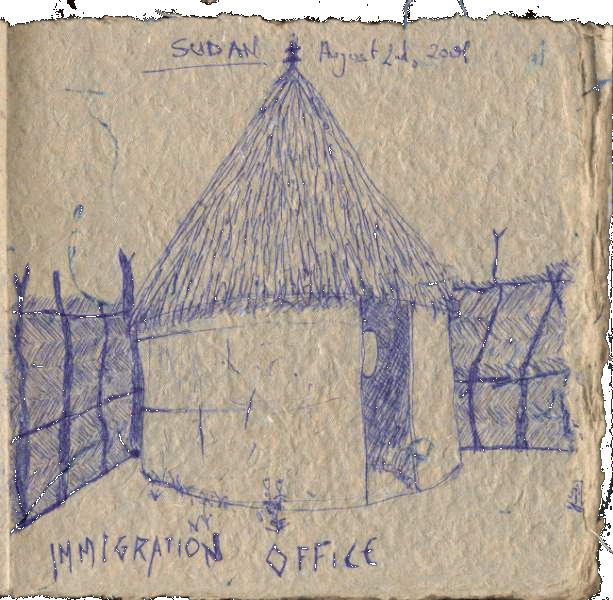 SUDAN August 2nd,
IMMIGRATION OFFICE